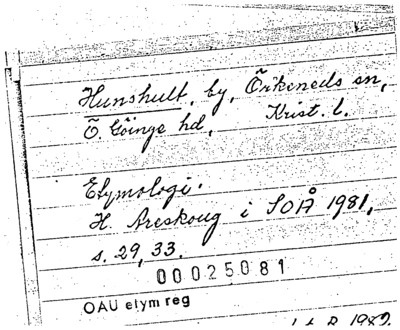 Hunshult, by, Örkeneds sn,
Ö. Göinge hd, Krist. l.
Etymologi.
H. Areskoug i SOÅ 1981,
s. 29, 33.
00025081
OAU etym reg
1982